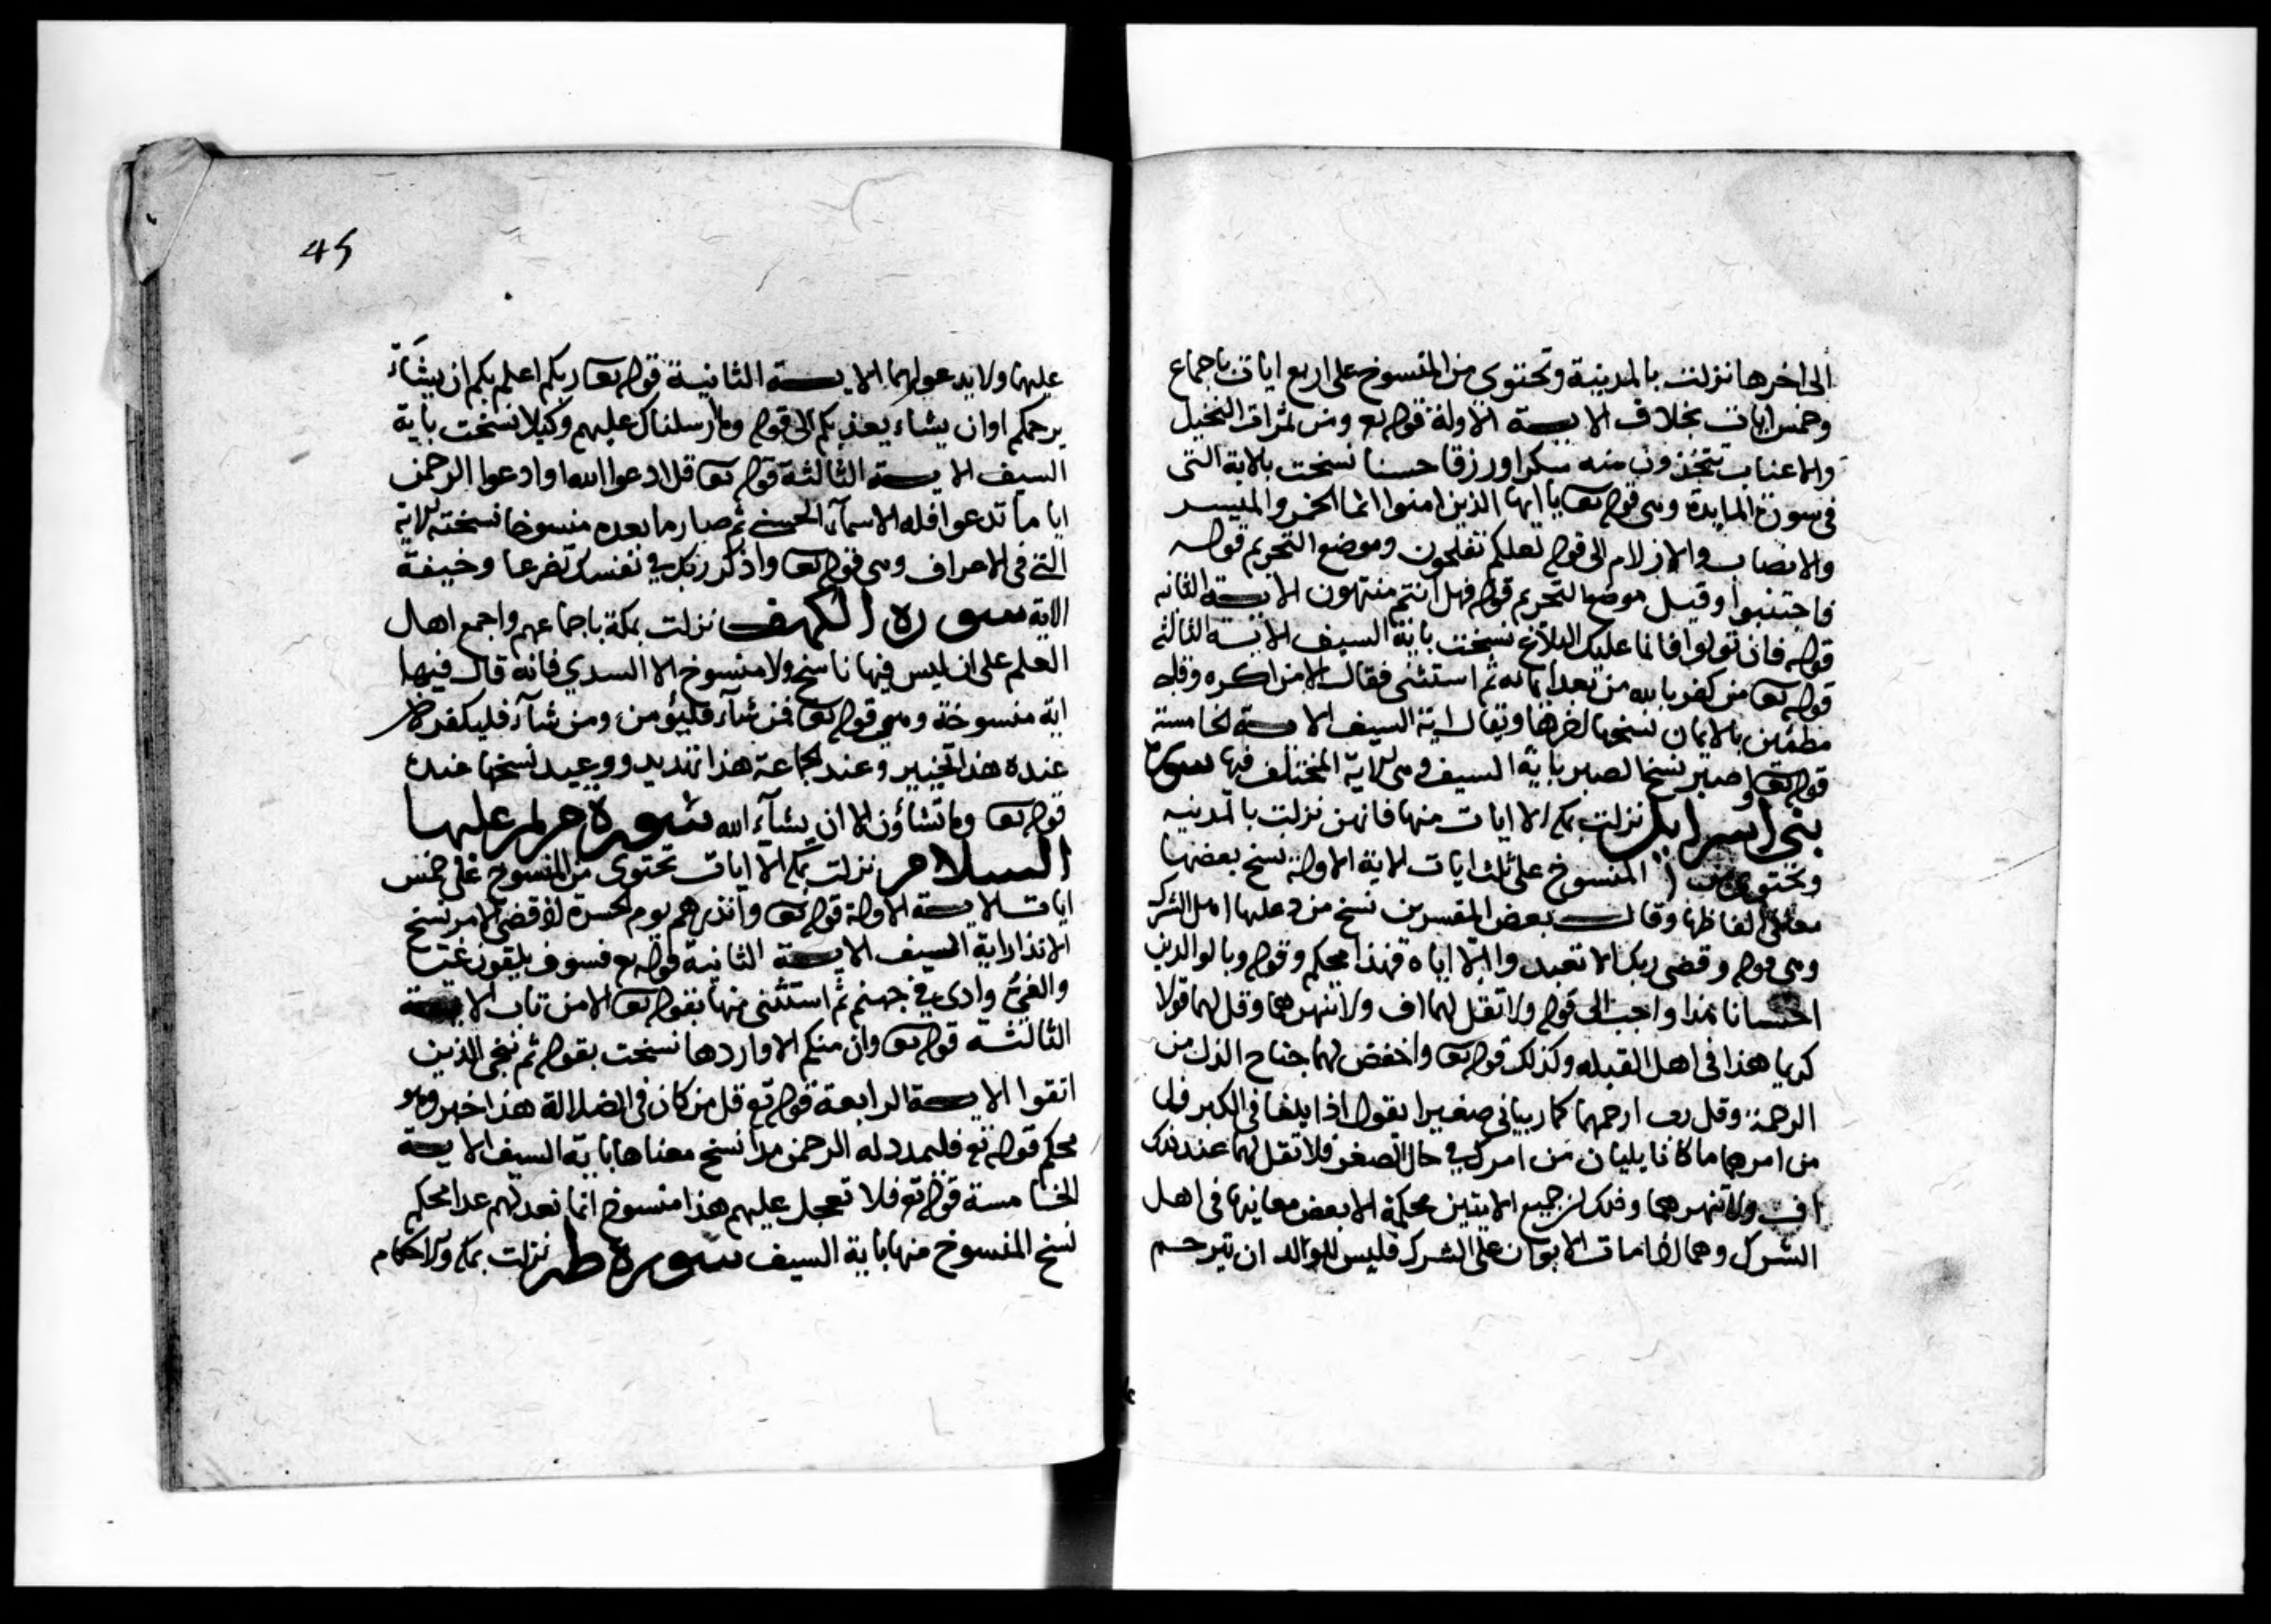 الى اخرها نزلت بالمدينة وتحتوي من المنسوخ على اربع ايات باجماع
وخمس ايات بخلاف الايــة الاولة قوله تع ومن ثمرات النخيل
والاعناب تتخذون منه سكرا ورزقا حسنا نسخت بالاية التى
فى سورة المايدة وهى قوله تعا يا ايها الذين امنوا انما الخمر والميسر
والانصاب والازلام الى قوله لعلكم تفلحون وموضع التحريم قوله
فاجتنبوا وقيل موضع التحريم قوله فهل انتم منتهون الايــة الثانيه
قوله فان تولوا فانما عليك البلاغ نسخت باية السيف الايــة الثالثة
قوله تعا من كفر بالله من بعد ايمانه ثم استثنى فقال الا من اكره وقلبه
مطمئن بالايمان نسختها اخرها ويقال اية السيف الايــة الخامسة
قوله تعا واصبر نسخ الصبر باية السيف وهى الاية المختلف فيها سورة
بنى اسرايل نزلت بمكة الا ايات منها فانهن نزلت بالمدينه
وتحتوي من المنسوخ على ثلث ايات الاية الاولة نسخ بعضها
معانى الفاظها وقال بعض المفسرين نسخ من دعايها اهل الشرك
وهى قوله وقضى ربك الا تعبدوا الا اياه فهذا محكم وقوله وبالوالدين
احسانا هذا واجب الى قوله ولا تقل لهما اف ولا تنهرهما وقل لهما قولا
كريما هذا فى اهل القبله وكذلك قوله تعا واخفض لهما جناح الذل من
الرحمة وقل رب ارحمهما كما ربيانى صغيرا يقول اذا بلغا فى الكبر فول
من امرهما ما كانا يليان من امرك في حال الصغر فلا تقل لهما عند ذلك
اف ولا تنهرهما وذلك ان جميع الايتين محكمة الا بعض معانيها فى اهل
الشرك وهما اذا ماتا الابوان على الشرك فليس للوالد ان يترحم
45
عليهما ولا يدعو لهما الايــة الثانيــة قوله تعا ربكم اعلم بكم ان يشاء
يرحمكم او ان يشاء يعذبكم الى قوله وما ارسلناك عليهم وكيلا نسخت باية
السيف الايــة الثالثة قوله تعا قل ادعوا الله او ادعوا الرحمن
ايا ما تدعوا فله الاسمآء الحسنى ثم صار ما بعده منسوخا نسخته الاية
التى فى الاعراف وهى قوله تعا واذكر ربك في نفسك تضرعا وخيفة
الاية سورة الكهف نزلت بمكة باجماعهم واجمع اهل
العلم على ان ليس فيها ناسخ ولا منسوخ الا السدي فانه قال فيها
اية منسوخة وهي قوله تعا فمن شآء فليؤمن ومن شآء فليكفر
عنده هذا تخيير وعند الجماعة هذا تهديد ووعيد نسخها عنده
قوله تعا وما تشاؤن الا ان يشآء الله سورة مريم عليها
السلام نزلت بمكة الا ايات تحتوى من المنسوخ على خمس
ايات الايــة الاولة قوله تعا وانذرهم يوم الحسرة اذ قضى الامر نسخ
الانذار اية السيف الايــة الثانية قوله تع فسوف يلقون غيا
والغي وادى في جهنم ثم استثنى منها بقوله تعا الا من تاب الايــة
الثالثة قوله تعا وان منكم الا واردها نسخت بقوله ثم ننجى الذين
اتقوا الايــة الرابعة قوله تع قل من كان فى الضلالة هذا خبر وهو
محكم قوله تع فليمدد له الرحمن مدا نسخ معناها باية السيف الايــة
الخامسة قوله تع فلا تعجل عليهم هذا منسوخ انما نعد لهم عدا محكم
نسخ المنسوخ منها باية السيف سورة طه نزلت بمكة